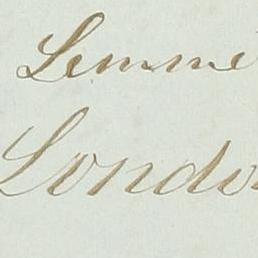 Lemme
Londo